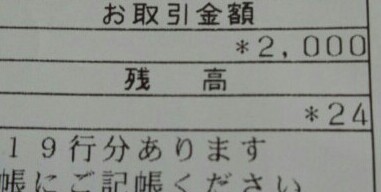 お取引金額
*2,000
残 高
*24
19行分あります
帳にご記帳ください